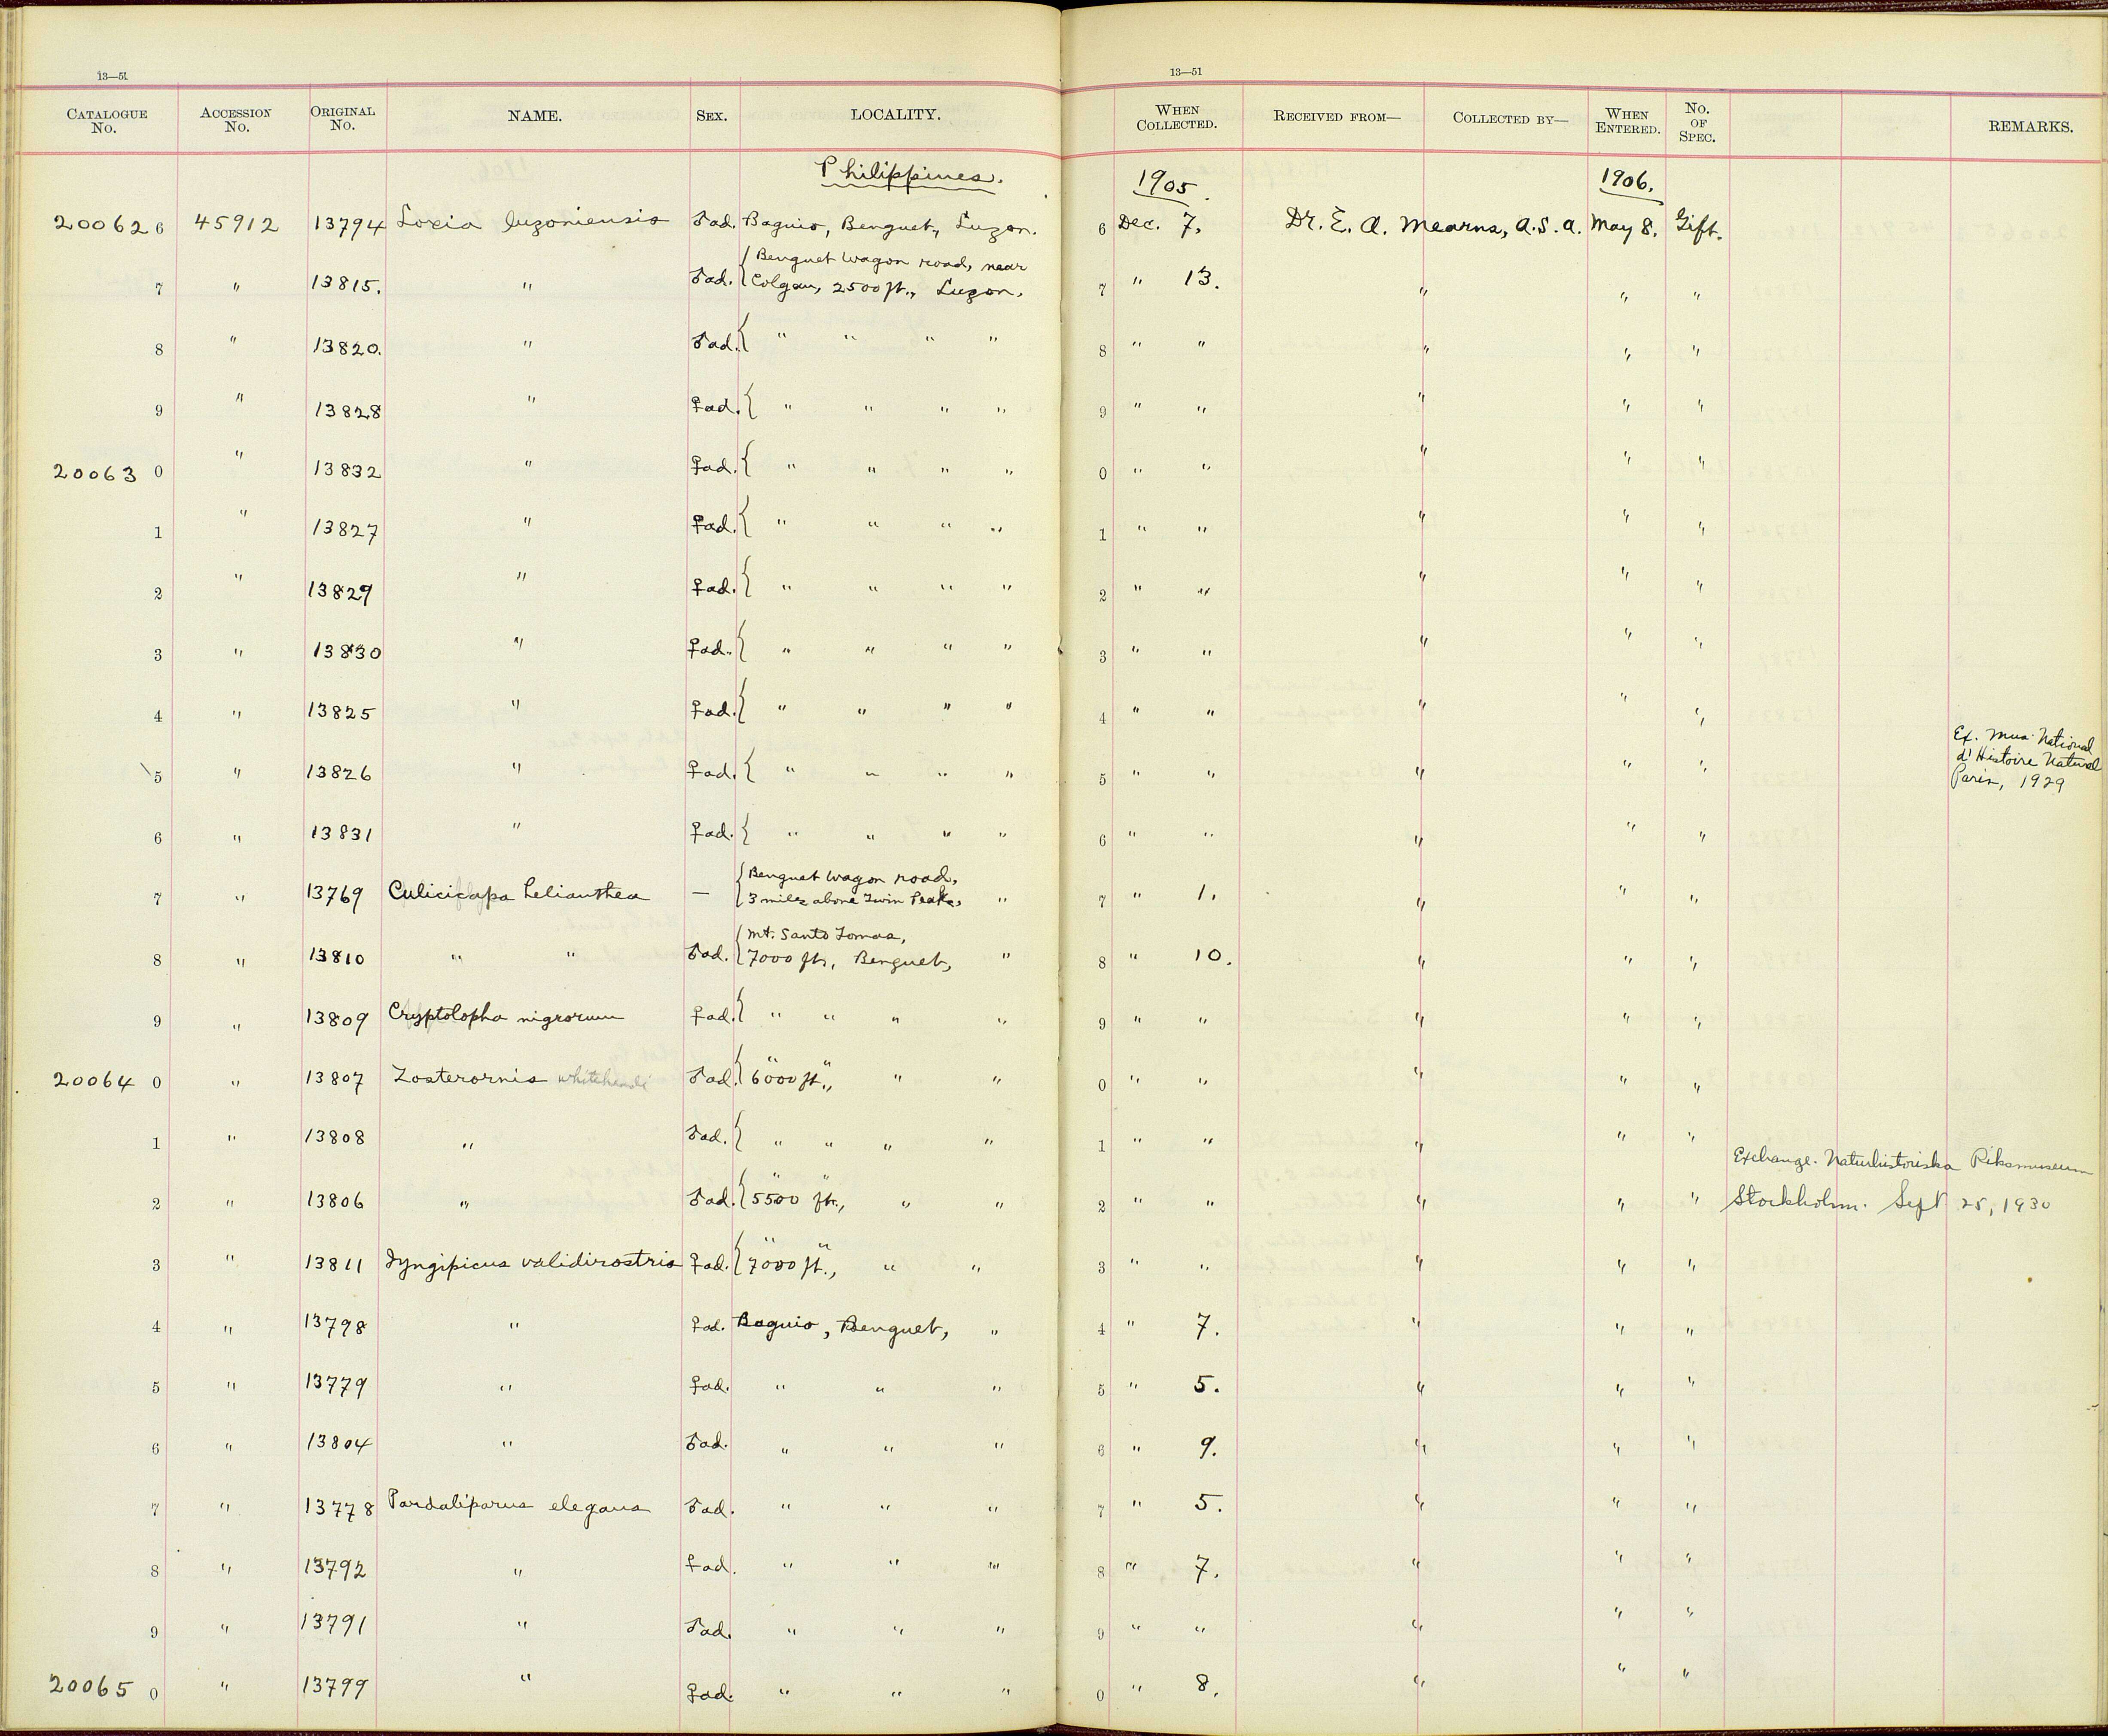 13—51 13—51
CATALOGUE No. ACCESSION No. ORIGINAL No. NAME. SEX. LOCALITY. WHEN COLLECTED. RECEIVED FROM— COLLECTED BY— WHEN ENTERED. No. OF SPEC. REMARKS.
Philippines. 1905. 1906.
20062 6 45912 13794 Loxia luzoniensis ♂ad. Baguio, Benguet, Luzon. 6 Dec. 7. Dr. E. A. Mearns, A.S.A. May 8. Gift.
7 " 13815. " ♂ad. { Benguet Wagon road, near Colgan, 2500 ft., Luzon. 7 " 13. " " "
8 " 13820. " ♂ad. { " " " " 8 " " " " "
9 " 13828 " ♀ad. { " " " " 9 " " " " "
20063 0 " 13832 " ♀ad. { " " " " 0 " " " " "
1 " 13827 " ♀ad. { " " " " 1 " " " " "
2 " 13829 " ♀ad. { " " " " 2 " " " " "
3 " 13830 " ♀ad. { " " " " 3 " " " " "
4 " 13825 " ♀ad. { " " " " 4 " " " " "
\5 " 13826 " ♀ad. { " " " " 5 " " " " " Ex. Mus. National d'Histoire Natural Paris, 1929
6 " 13831 " ♀ad. { " " " " 6 " " " " "
7 " 13769 Culicicapa helianthea — { Benguet Wagon road, 3 miles above Twin Peaks, " 7 " 1. " " "
8 " 13810 " " ♂ad. { Mt. Santo Tomas, 7000 ft., Benguet, " 8 " 10. " " "
9 " 13809 Cryptolopha nigrorum ♀ad. { " " " " 9 " " " " "
20064 0 " 13807 Zosterornis whiteheadi ♂ad. { " " 6000 ft., " " 0 " " " " "
1 " 13808 " ♂ad. { " " " " 1 " " " " "
2 " 13806 " ♂ad. { " " 5500 ft., " " 2 " " " " " Exchange. Naturhistoriska Riksmuseum Stockholm. Sept 25, 1930
3 " 13811 Iyngipicus validirostris ♀ad. { " " 7000 ft., " " 3 " " " " "
4 " 13798 " ♀ad. Baguio, Benguet, " 4 " 7. " " "
5 " 13779 " ♀ad. " " " 5 " 5. " " "
6 " 13804 " ♂ad. " " " 6 " 9. " " "
7 " 13778 Pardaliparus elegans ♂ad. " " " 7 " 5. " " "
8 " 13792 " ♀ad. " " " 8 " 7. " " "
9 " 13791 " ♂ad. " " " 9 " " " " "
20065 0 " 13799 " ♀ad. " " " 0 " 8. " " "